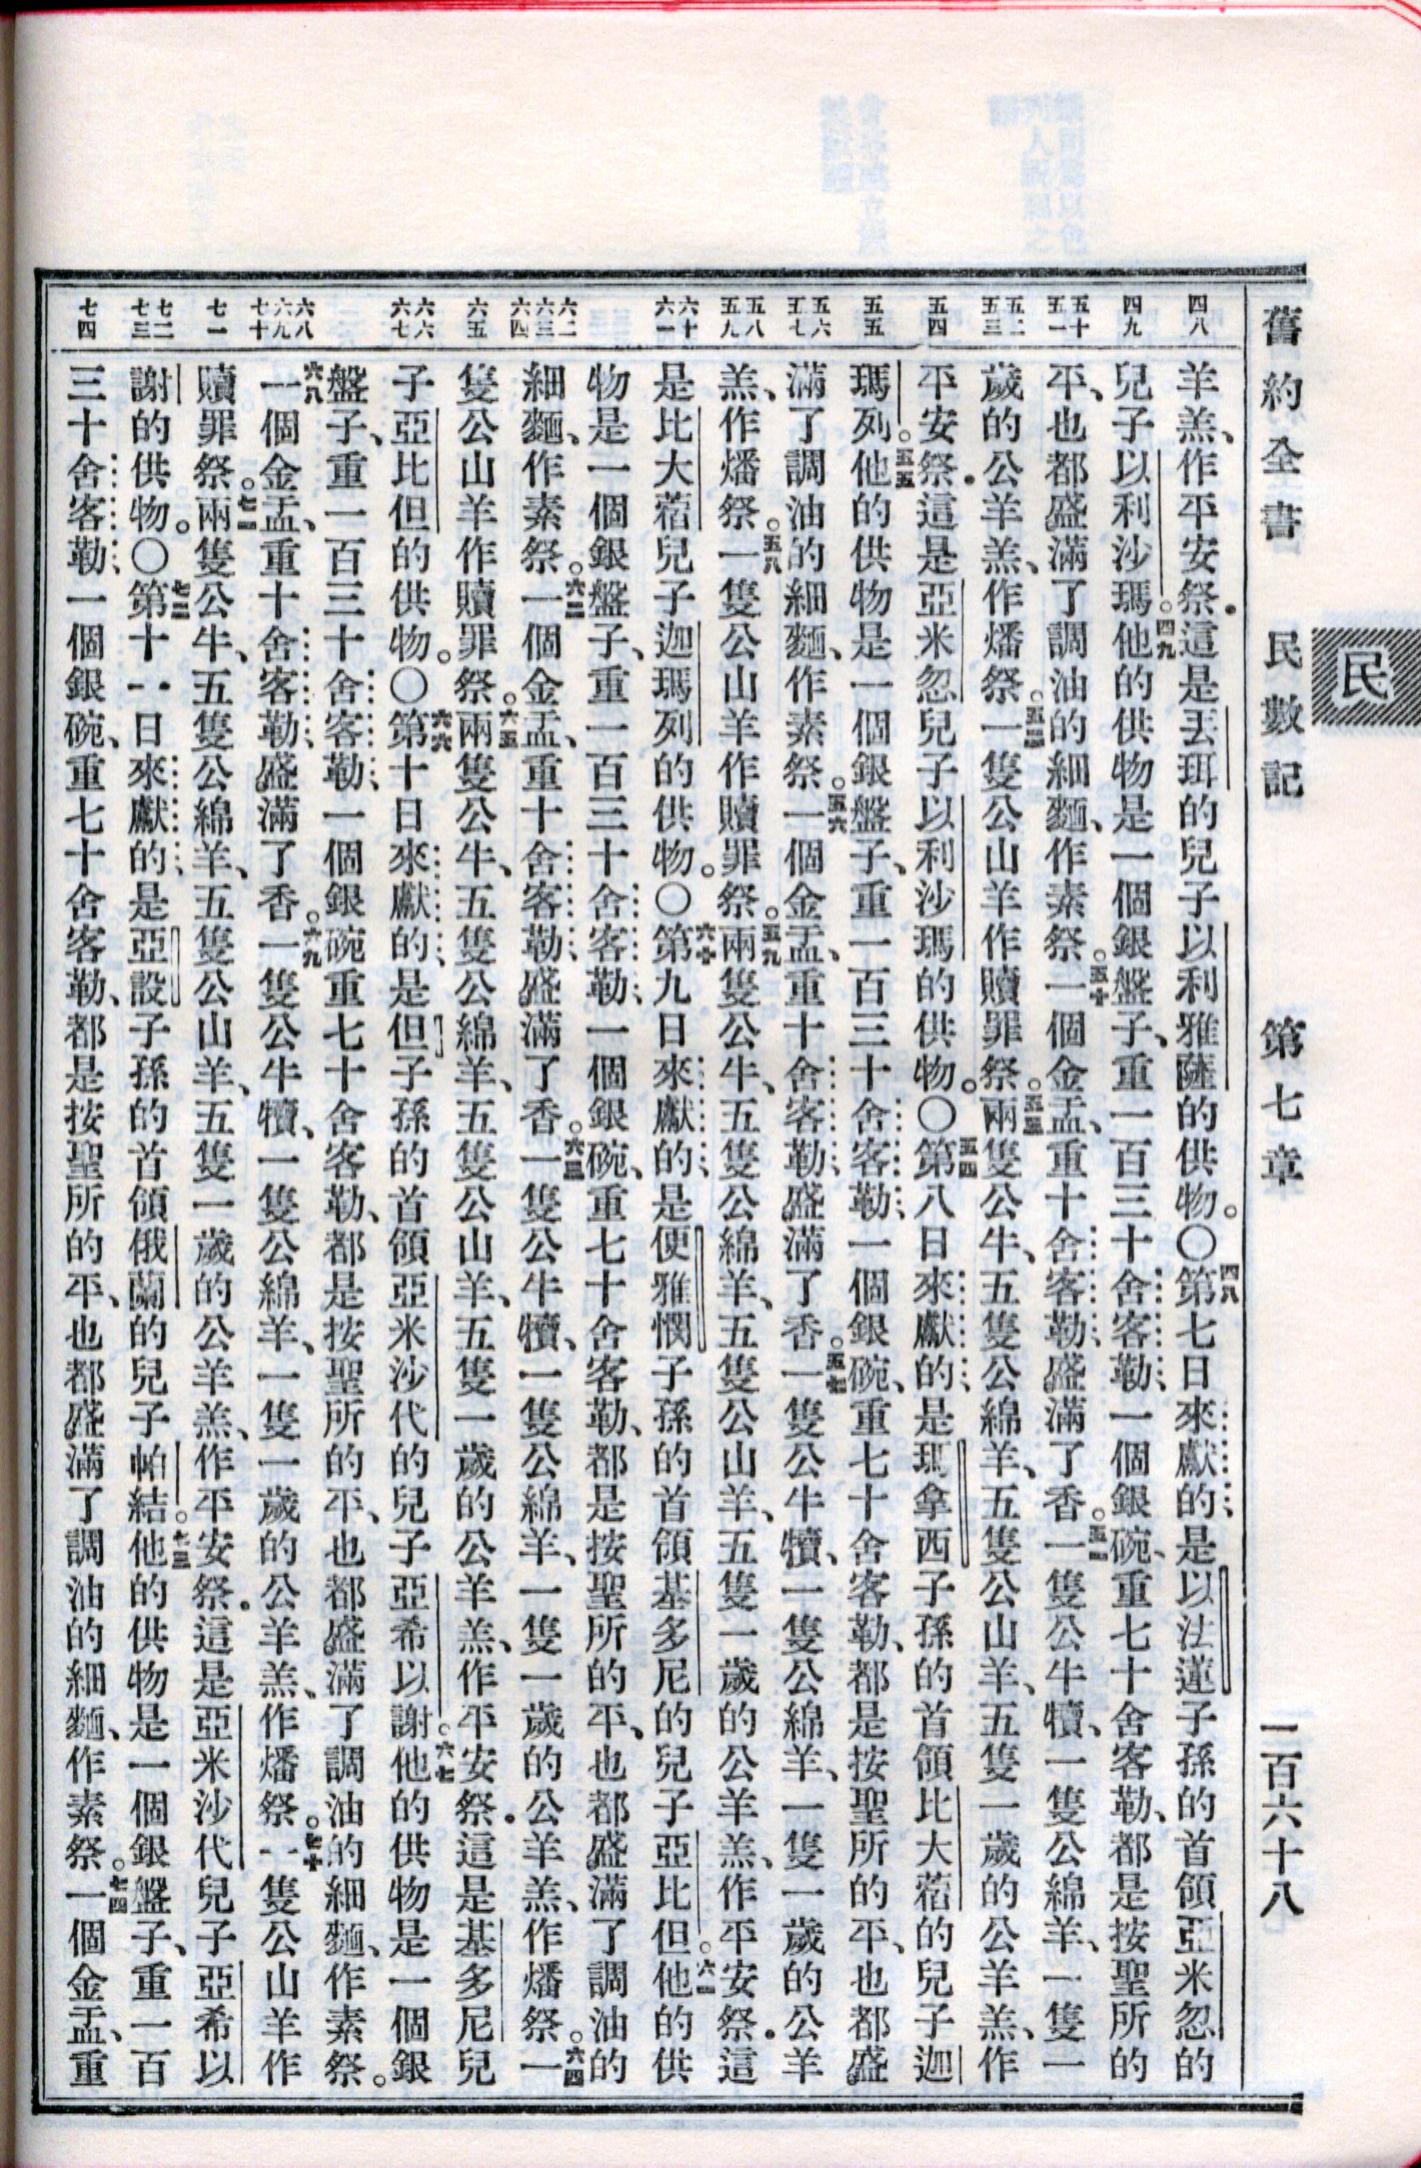 舊約全書 民數記 第七章 一百六十八
民
四八
羊羔、作平安祭.這是丟珥的兒子以利雅薩的供物。〇四八第七日來獻的是以法蓮子孫的首領亞米忽的
四九
兒子以利沙瑪。四九他的供物是一個銀盤子、重一百三十舍客勒、一個銀碗、重七十舍客勒、都是按聖所的
五十 五一
平、也都盛滿了調油的細麵、作素祭。五十一個金盂、重十舍客勒、盛滿了香。五一一隻公牛犢、一隻公綿羊、一隻一
五二 五三
歲的公羊羔、作燔祭。五二一隻公山羊作贖罪祭。五三兩隻公牛、五隻公綿羊、五隻公山羊、五隻一歲的公羊羔、作
五四
平安祭.這是亞米忽兒子以利沙瑪的供物。〇五四第八日來獻的是瑪拿西子孫的首領比大蓿的兒子迦
五五
瑪列。五五他的供物是一個銀盤子、重一百三十舍客勒、一個銀碗、重七十舍客勒、都是按聖所的平、也都盛
五六 五七
滿了調油的細麵、作素祭。五六一個金盂、重十舍客勒、盛滿了香。五七一隻公牛犢、一隻公綿羊、一隻一歲的公羊
五八 五九
羔、作燔祭。五八一隻公山羊作贖罪祭。五九兩隻公牛、五隻公綿羊、五隻公山羊、五隻一歲的公羊羔、作平安祭.這
六十 六一
是比大蓿兒子迦瑪列的供物。〇六十第九日來獻的、是便雅憫子孫的首領基多尼的兒子亞比但。六一他的供
物是一個銀盤子、重一百三十舍客勒、一個銀碗、重七十舍客勒、都是按聖所的平、也都盛滿了調油的
六二 六三 六四
細麵、作素祭。六二一個金盂、重十舍客勒、盛滿了香。六三一隻公牛犢、一隻公綿羊、一隻一歲的公羊羔、作燔祭。六四一
六五
隻公山羊作贖罪祭。六五兩隻公牛、五隻公綿羊、五隻公山羊、五隻一歲的公羊羔、作平安祭.這是基多尼兒
六六 六七
子亞比但的供物。〇六六第十日來獻的、是但子孫的首領亞米沙代的兒子亞希以謝。六七他的供物是一個銀
盤子、重一百三十舍客勒、一個銀碗重七十舍客勒、都是按聖所的平、也都盛滿了調油的細麵、作素祭。
六八 六九 七十
六八一個金盂、重十舍客勒、盛滿了香。六九一隻公牛犢、一隻公綿羊、一隻一歲的公羊羔、作燔祭。七十一隻公山羊作
七一
贖罪祭。七一兩隻公牛、五隻公綿羊、五隻公山羊、五隻一歲的公羊羔、作平安祭.這是亞米沙代兒子亞希以
七二 七三
謝的供物。〇七二第十一日來獻的、是亞設子孫的首領俄蘭的兒子帕結。七三他的供物是一個銀盤子、重一百
七四
三十舍客勒、一個銀碗、重七十舍客勒、都是按聖所的平、也都盛滿了調油的細麵、作素祭。七四一個金盂、重